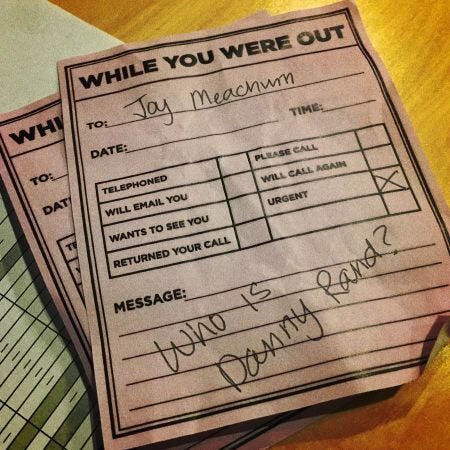 WHILE YOU WERE OUT
TO: Joy Meachum
DATE: TIME:
TELEPHONED PLEASE CALL
WILL EMAIL YOU WILL CALL AGAIN
WANTS TO SEE YOU URGENT
RETURNED YOUR CALL
MESSAGE:
Who is
Danny Rand?
WHI
TO:
DAT